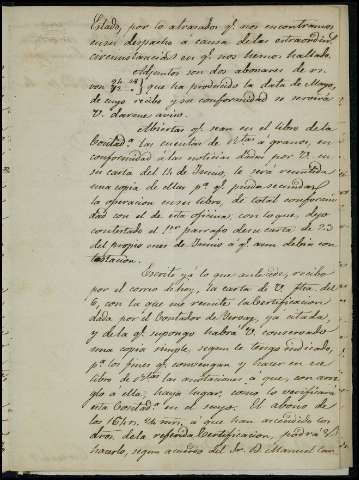 Estado, por lo atrasados q.e nos encontramos
en su despacho a causa de las extraordin.s
circunstancias en q.e nos hemos hallado.
Adjuntos son dos abonares de rs.
von que ha producido la data de Mayo,
de cuyo recibo y su conformidad se servirá
V. darme aviso.
Abiertas q.e sean en el libro de la
Contad.a las cuentas de a granos, en
conformidad á las noticias dadas por V. en
su carta del 14 de Junio, le será remitida
una copia de ellas p.a q.e pueda secundar
la operacion en su libro, de total conformi
dad con el de esta oficina, con lo que, dejo
contestado el 1.er parrafo de su carta de 23
del propio mes de Junio á q.e aun debia con
testacion.
Escrito ya lo que antecede, recibo
por el correo de hoy, la carta de V. fha. del
6, con la que me remite la Certificacion
dada por el Contador de ya citada,
y de la q.e supongo habrá V. conservado
una copia simple, segun le tengo indicado,
p.a los fines q.e convengan y hacer en su
libro de las anotaciones a que, con arre
glo a ella, haya lugar, como lo verificará
esta Contad.a en el suyo. El abono de
los mrs, a que han ascendido los
dros. de la referida Certificacion, podrá V.
hacerlo, segun acuerdo del Sr. D. Manuel